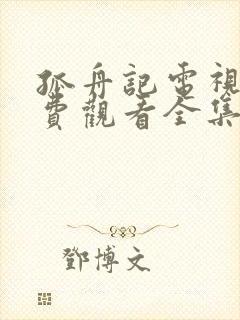 孤舟記電視
費觀看全集
鄧博文